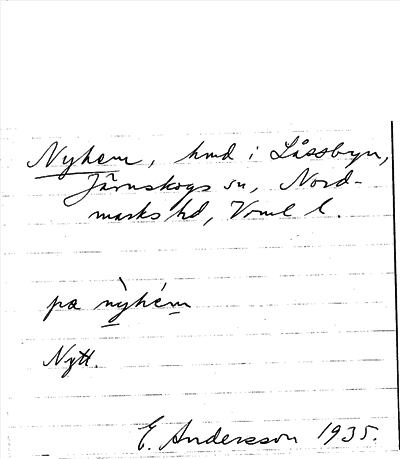 Nyhem, hmd i Låssbyn,
Järnskogs sn, Nord-
marks hd, Vrml l.
pæ nỳhém
Nytt.
E. Andersson 1935.